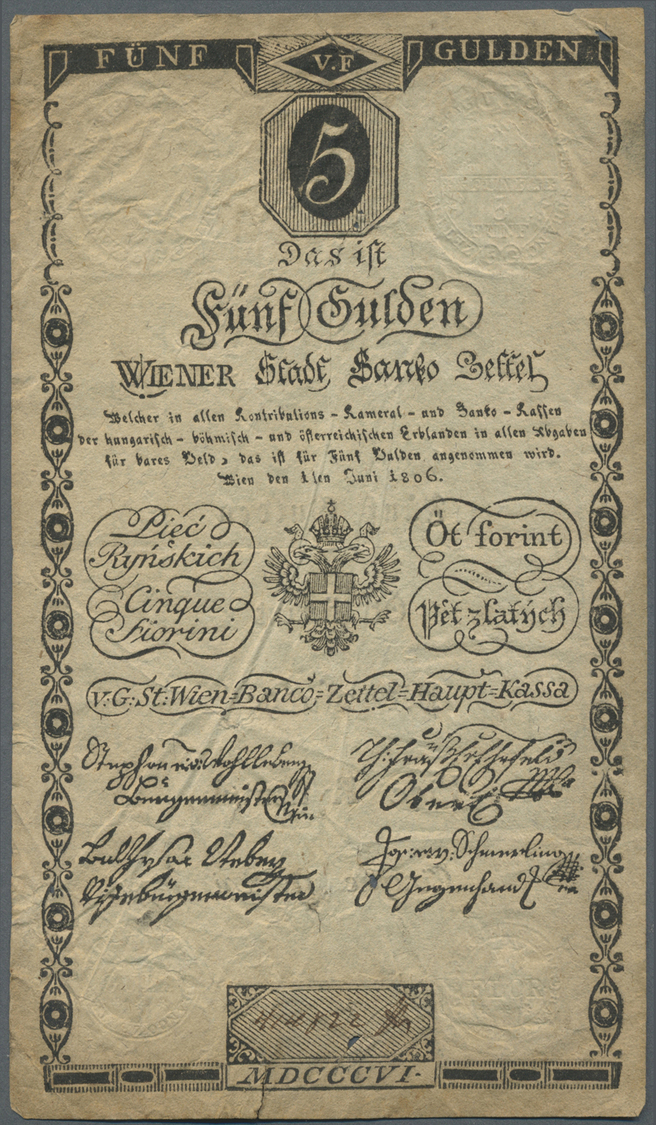 FÜNF V.F GULDEN
5
Das ist
Fünf Gulden
WIENER Stadt Banko Zettel
Welcher in allen Kontributions - Kameral - und Banko - Kassen
der hungarisch - böhmisch - und österreichischen Erblanden in allen Abgaben
für bares Geld, das ist für Fünf Gulden angenommen wird.
Wien den 1ten Juni 1806.
Pięć
Ryńskich
Cinque
Fiorini
Öt forint
Pět zlatých
v: G: St: Wien=Banco=Zettel=Haupt=Kassa
Stephan
Burgermeister
Vizebürgermeister
Schmerling
Gegenhand
MDCCCVI